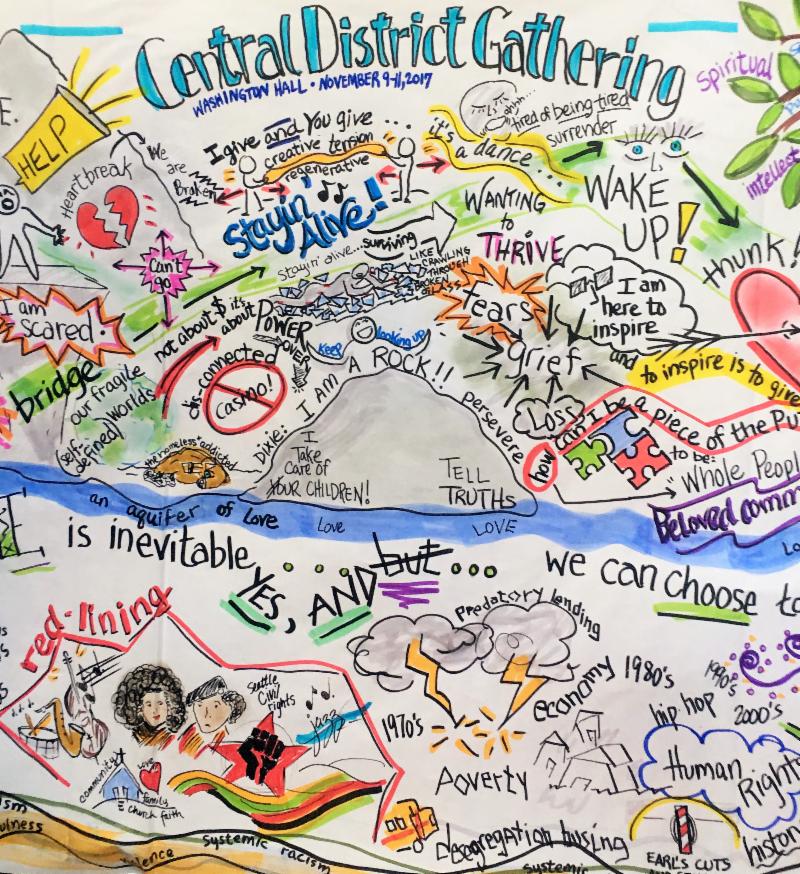 Central District Gathering
WASHINGTON HALL • NOVEMBER 9-11, 2017
Spiritual
intellect
E.
HELP
Heartbreak
We
are
Broken
I give and You give ...
creative tension
regenerative
it's
a dance...
ahhh...
tired of being tired
surrender
WAKE
UP!
thunk!
Stayin'
Alive!
WANTING
to
THRIVE
Can't
go
stayin' alive... surviving
LIKE
CRAWLING
THROUGH
BROKEN
GLASS
tears
I am
here to
inspire
I am
scared.
not about $ it's
about
POWER
OVER
Keep
looking up
grief
and
to inspire is to give
bridge
our fragile
self-
defined
Worlds
dis-connected
Casino!
I AM A ROCK!!
persevere
Loss
how can I be a piece of the Pu
to be:
Whole Peopl
Beloved comm
the homeless addicted
Dixie:
I
Take
care of
YOUR CHILDREN!
TELL
TRUTHs
an aquifer of Love
Love
LOVE
Lo
is inevitable....
YES, AND but...
we can choose to
red-lining
Seattle
Civil
rights
jazz
community
love
family
church faith
Predatory lending
1970's
economy 1980's
1990's
hip-hop
2000's
Poverty
Human
Rights
desegregation busing
EARL'S CUTS
history
ism
ulness
lence
systemic racism
systemic